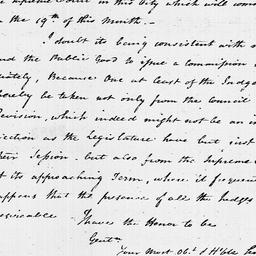 Supreme Court in this City which will com
on the 19th of this Month.–
I doubt its being consistent with
and the Public Good to issue a Commission
Because One at least of the Judges
be taken not only from the Council
Revision, which indeed might not be an
as the Legislature have but just
their Session. but also from the Supreme
at its approaching Term, where it frequen
happens that the presence of all the Judges
I have the Honor to be
Gentn
Your Most Obt & Hble